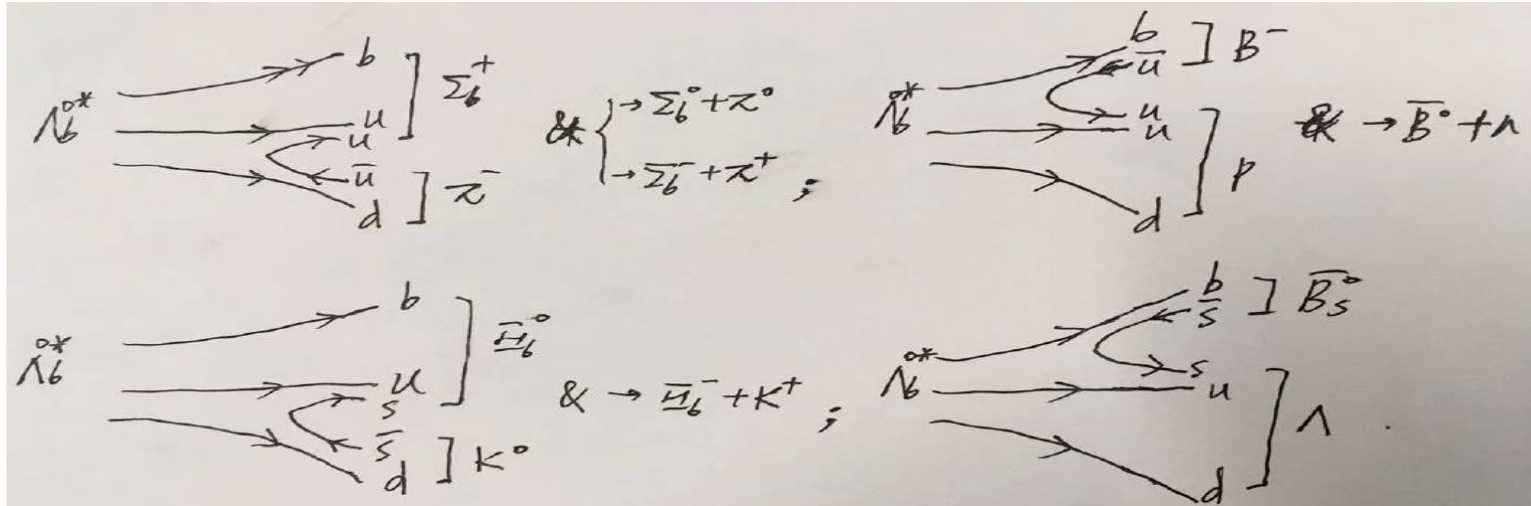 Λb°* b u u ū d ] Σb⁺ ] π⁻ & { → Σb° + π° → Σb⁻ + π⁺ ;
Λb°* b ū u u d ] B⁻ ] p → B̄° + n
Λb°* b u s s̄ d ] Ξb° ] K° & → Ξb⁻ + K⁺ ;
Λb°* b s̄ s u d ] B̄s° ] Λ .